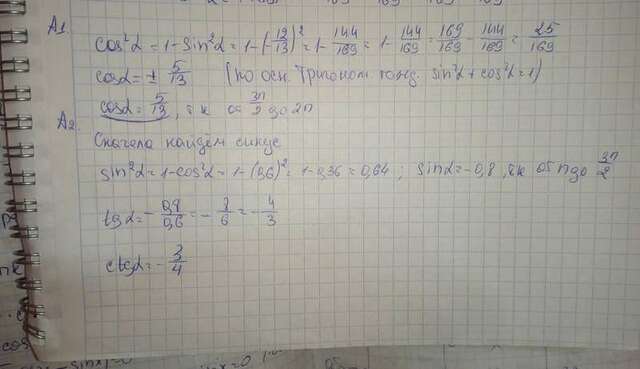 A1.
cos²α = 1 - sin²α = 1 - (12/13)² = 1 - 144/169 = 1 - 144/169 = 169/169 - 144/169 = 25/169
cosα = ± 5/13 (по осн. тригоном. тожд. sin²α + cos²α = 1)
cosα = 5/13, т.к от 3π/2 до 2π
A2.
Сначала найдём синус
sin²α = 1 - cos²α = 1 - (0,6)² = 1 - 0,36 = 0,64 ; sinα = -0,8, т.к от π до 3π/2
tgα = - 0,8/0,6 = - 8/6 = - 4/3
ctgα = - 3/4